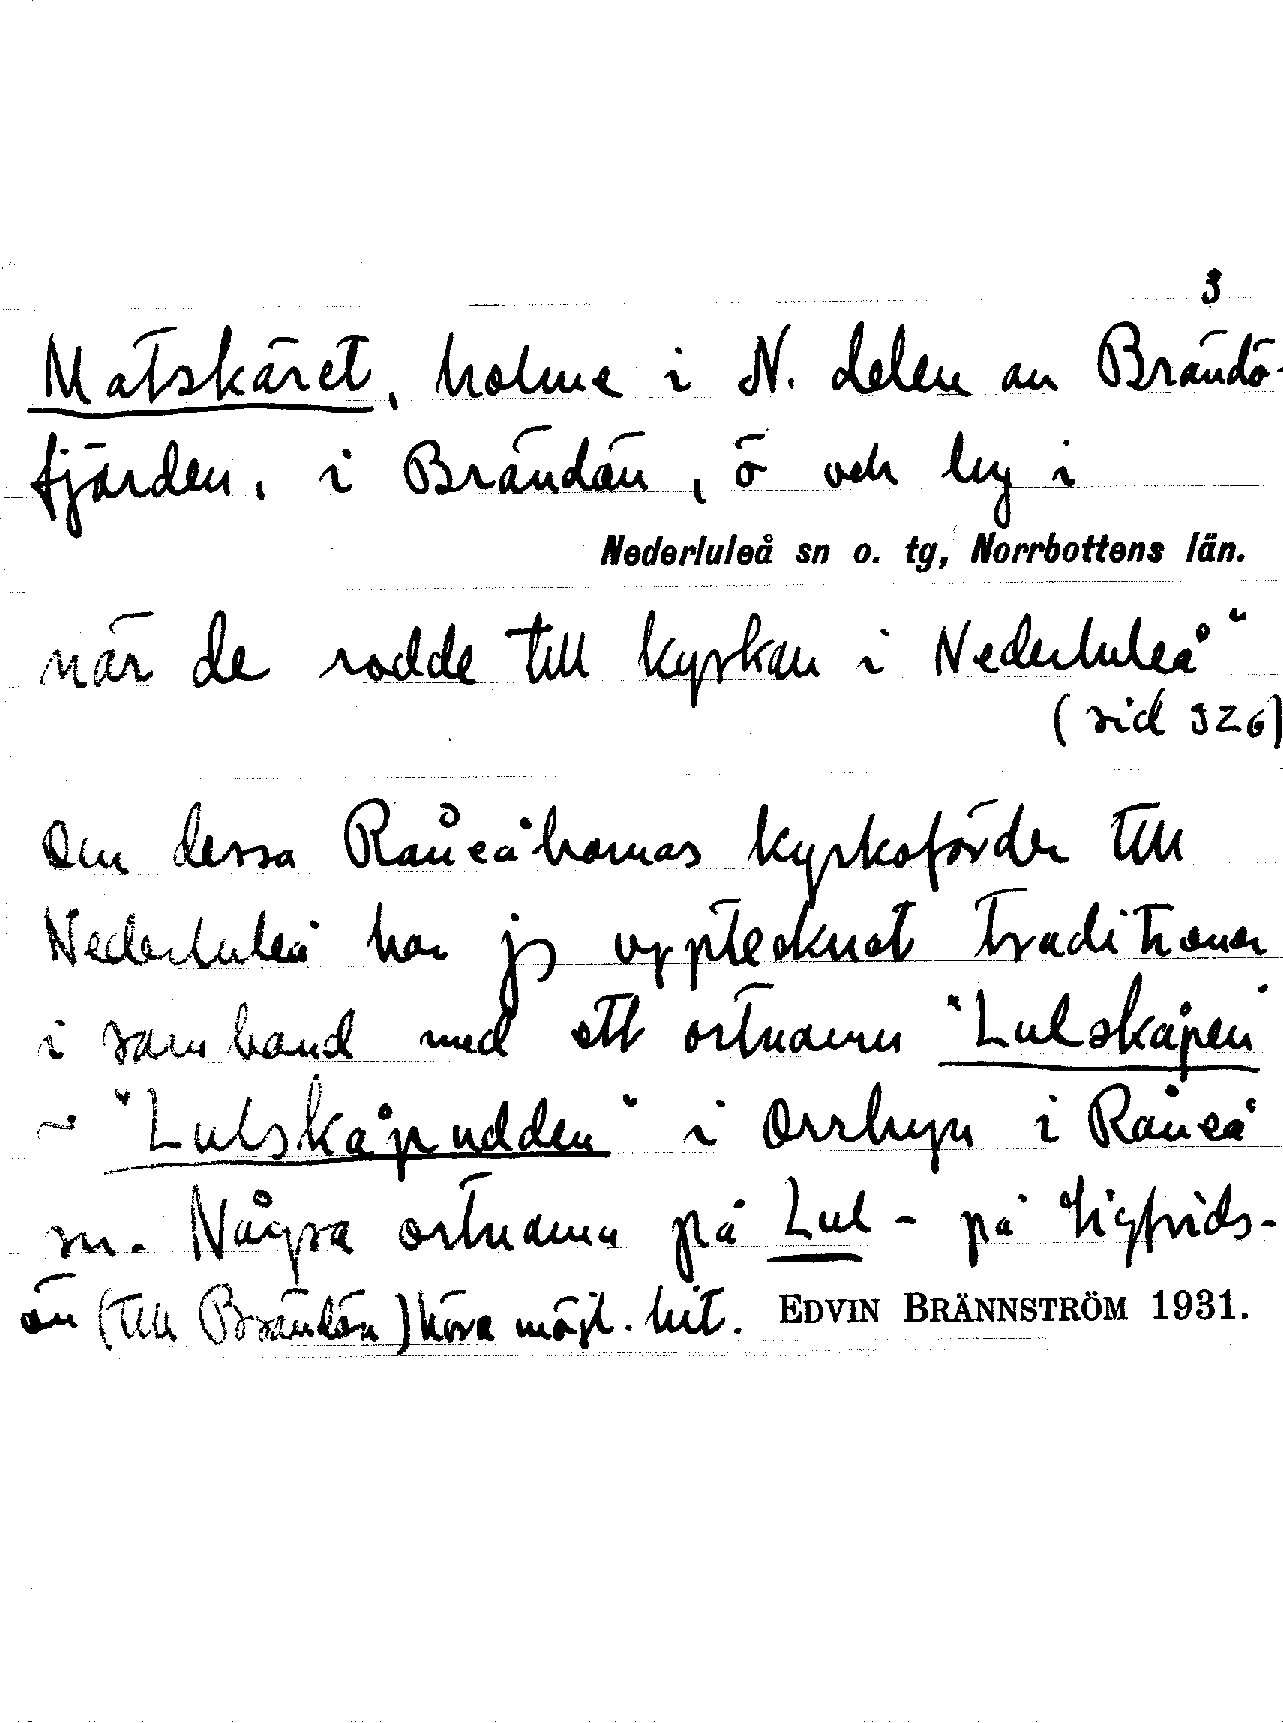 3
Matskäret, holme i N. delen av Brändö-
fjärden, i Brändön, ö och by i
Nederluleå sn o. tg, Norrbottens län.
när de rodde till kyrkan i Nederluleå"
(sid 326)
Om dessa Råneåbornas kyrkofärder till
Nederluleå har jg upptecknat traditioner
i samband med ett ortnamn "Lulskåpen"
~ "Lulskåpudden" i Orrbyn i Råneå
sn. Några ortnamn på Lul- på Sigfrids-
ön (till Brändön) höra möjl. hit. EDVIN BRÄNNSTRÖM 1931.